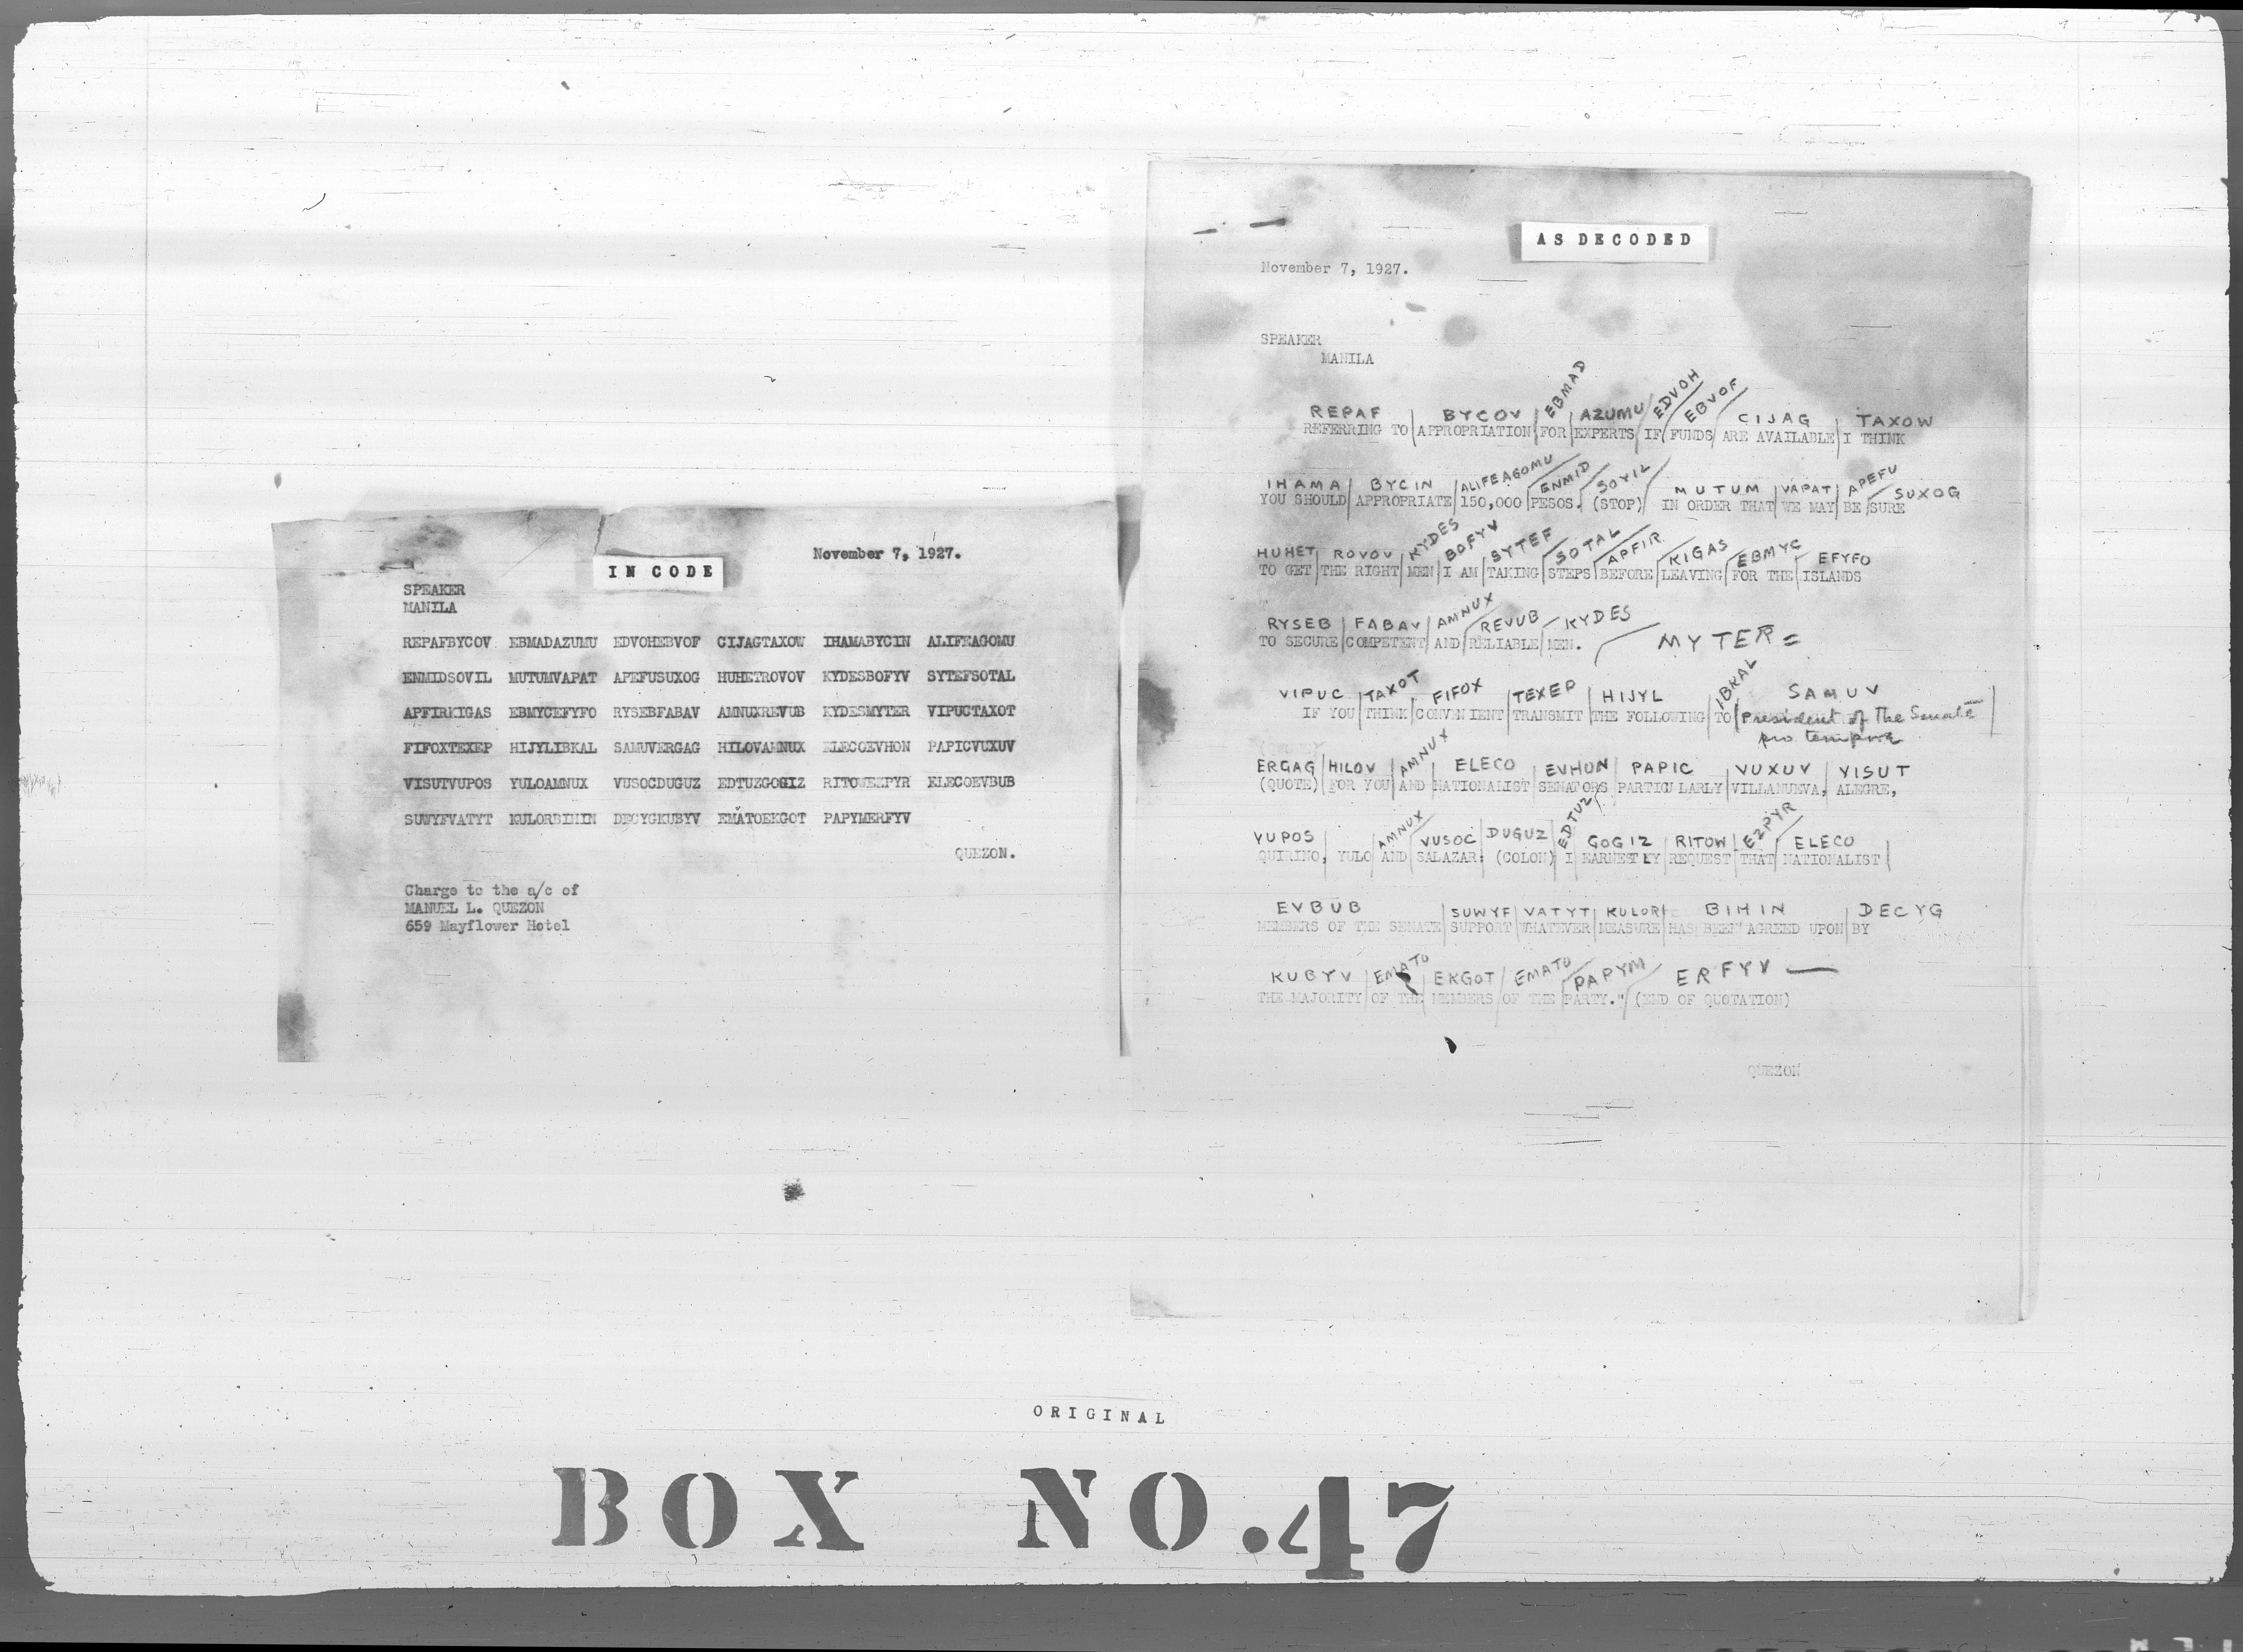 IN CODE
November 7, 1927.
SPEAKER
MANILA
REPAFBYCOV EBMADAZUMU EDVOHEBVOF CIJAGTAXOW IHAMABYCIN ALIFEAGOMU
ENMIDSOVIL MUTUMVAPAT APEFUSUXOG HUHETROVOV KYDESBOFYV SYTEFSOTAL
APFIRKIGAS EBMYCEFYFO RYSEBFABAV AMNUXREVUB KYDESMYTER VIPUCTAXOT
FIFOXTEXEP HIJYLIBKAL SAMUVERGAG HILOVAMNUX ELECOEVHON PAPICVUXUV
VISUTVUPOS YULOAMNUX VUSOCDUGUZ EDTUZGOGIZ RITOWEZPYR ELECOEVBUB
SUWYFVATYT KULORBIHIN DECYGKUBYV EMATOEKGOT PAPYMERFYV
QUEZON.
Charge to the a/c of
MANUEL L. QUEZON
659 Mayflower Hotel
AS DECODED
November 7, 1927.
SPEAKER
MANILA
REPAF BYCOV EBMAD AZUMU EDVOH EBVOF CIJAG TAXOW
REFERRING TO APPROPRIATION FOR EXPERTS IF FUNDS ARE AVAILABLE I THINK
IHAMA BYCIN ALIFEAGOMU ENMID SOVIL MUTUM VAPAT APEFU SUXOG
YOU SHOULD APPROPRIATE 150,000 PESOS. (STOP) IN ORDER THAT WE MAY BE SURE
HUHET ROVOV KYDES BOFYV SYTEF SOTAL APFIR KIGAS EBMYC EFYFO
TO GET THE RIGHT MEN I AM TAKING STEPS BEFORE LEAVING FOR THE ISLANDS
RYSEB FABAV AMNUX REVUB KYDES MYTER =
TO SECURE COMPETENT AND RELIABLE MEN.
VIPUC TAXOT FIFOX TEXEP HIJYL IBKAL SAMUV
IF YOU THINK CONVENIENT TRANSMIT THE FOLLOWING TO President of The Senate
pro tempore
ERGAG HILOV AMNUX ELECO EVHON PAPIC VUXUV VISUT
(QUOTE) FOR YOU AND NATIONALIST SENATORS PARTICULARLY VILLANUEVA, ALEGRE,
VUPOS AMNUX VUSOC DUGUZ EDTUZ GOGIZ RITOW EZPYR ELECO
QUIRINO, YULO AND SALAZAR: (COLON) I EARNESTLY REQUEST THAT NATIONALIST
EVBUB SUWYF VATYT KULOR BIHIN DECYG
MEMBERS OF THE SENATE SUPPORT WHATEVER MEASURE HAS BEEN AGREED UPON BY
KUBYV EMATO EKGOT EMATO PAPYM ERFYV —
THE MAJORITY OF THE MEMBERS OF THE PARTY." (END OF QUOTATION)
QUEZON
ORIGINAL
BOX NO. 47